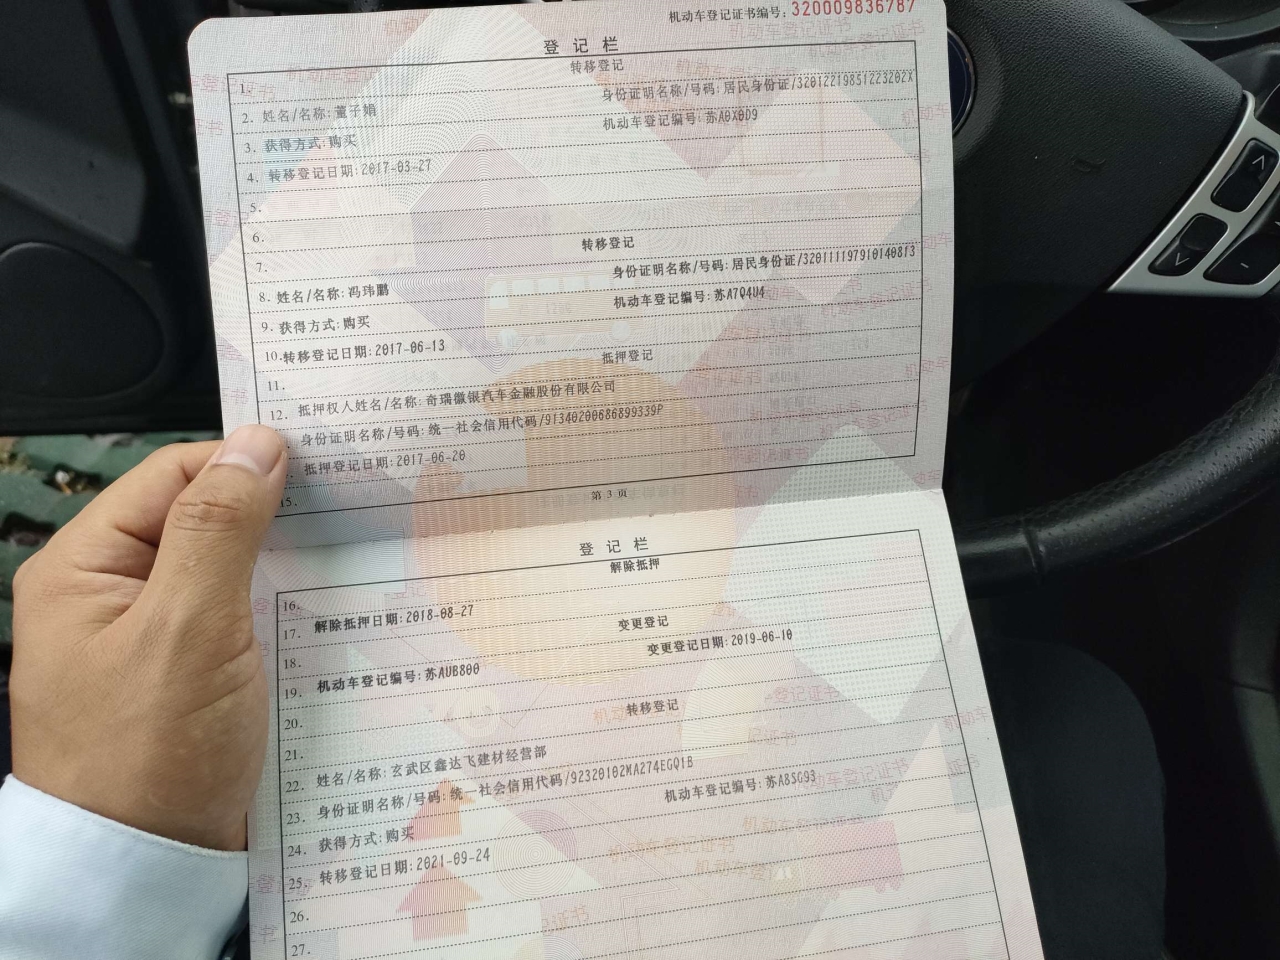 机动车登记证书编号: 320009836787
登记栏
1. 转移登记
2. 姓名/名称:董子娟 身份证明名称/号码:居民身份证/32012219851223202X
3. 获得方式:购买 机动车登记编号:苏A0X0D9
4. 转移登记日期:2017-03-27
5.
6.
7. 转移登记
8. 姓名/名称:冯玮鹏 身份证明名称/号码:居民身份证/320111197910140813
9. 获得方式:购买 机动车登记编号:苏A7Q4U4
10. 转移登记日期:2017-06-13
11. 抵押登记
12. 抵押权人姓名/名称:奇瑞徽银汽车金融股份有限公司
身份证明名称/号码:统一社会信用代码/91340200686899339P
抵押登记日期:2017-06-20
15.
第3页
登记栏
16. 解除抵押
17. 解除抵押日期:2018-08-27
18. 变更登记
19. 机动车登记编号:苏AUB800 变更登记日期:2019-06-10
20.
21. 转移登记
22. 姓名/名称:玄武区鑫达飞建材经营部
23. 身份证明名称/号码:统一社会信用代码/92320102MA274EGQ1B
24. 获得方式:购买 机动车登记编号:苏A8SG93
25. 转移登记日期:2021-09-24
26.
27.